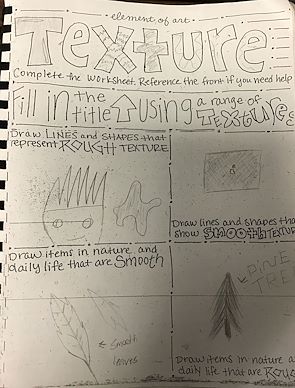 element of art
Texture
Complete the worksheet. Reference the front if you need help
Fill in the title ↑ using a range of TEXTURES
Draw LINES and SHAPES that
represent ROUGH TEXTURE
Draw lines and shapes tha
show SMOOTH TEXTUR
Draw items in nature and
daily life that are Smooth
Smooth
leaves
PINE
TREE
Draw items in nature a
daily life that are ROUG